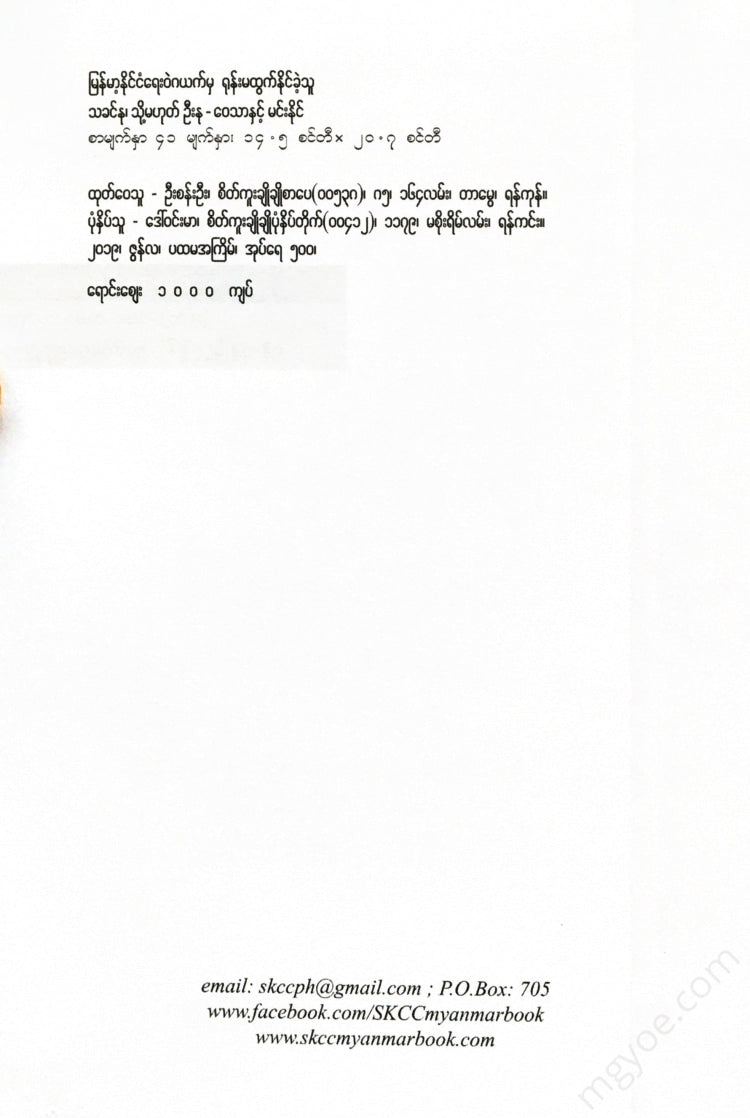 မြန်မာ့နိုင်ငံရေးဝဲဂယက်မှ ရုန်းမထွက်နိုင်ခဲ့သူ
သခင်နု၊ သို့မဟုတ် ဦးနု - ဝေသာနှင့် မင်းနိုင်
စာမျက်နှာ ၄၁ မျက်နှာ၊ ၁၄.၅ စင်တီ× ၂၀.၇ စင်တီ
ထုတ်ဝေသူ - ဦးစန်းဦး၊ စိတ်ကူးချိုချိုစာပေ(၀၀၅၃၈)၊ ဂ၅၊ ၁၆၄လမ်း၊ တာမွေ၊ ရန်ကုန်။
ပုံနှိပ်သူ - ဒေါ်ဝင်းမာ၊ စိတ်ကူးချိုချိုပုံနှိပ်တိုက်(၀၀၄၁၂)၊ ၁၁၇၉၊ မစိုးရိမ်လမ်း၊ ရန်ကင်း။
၂၀၁၉၊ ဇွန်လ၊ ပထမအကြိမ်၊ အုပ်ရေ ၅၀၀၊
ရောင်းဈေး ၁၀၀၀ ကျပ်
email: skccph@gmail.com ; P.O.Box: 705
www.facebook.com/SKCCmyanmarbook
www.skccmyanmarbook.com
mgyoe.com